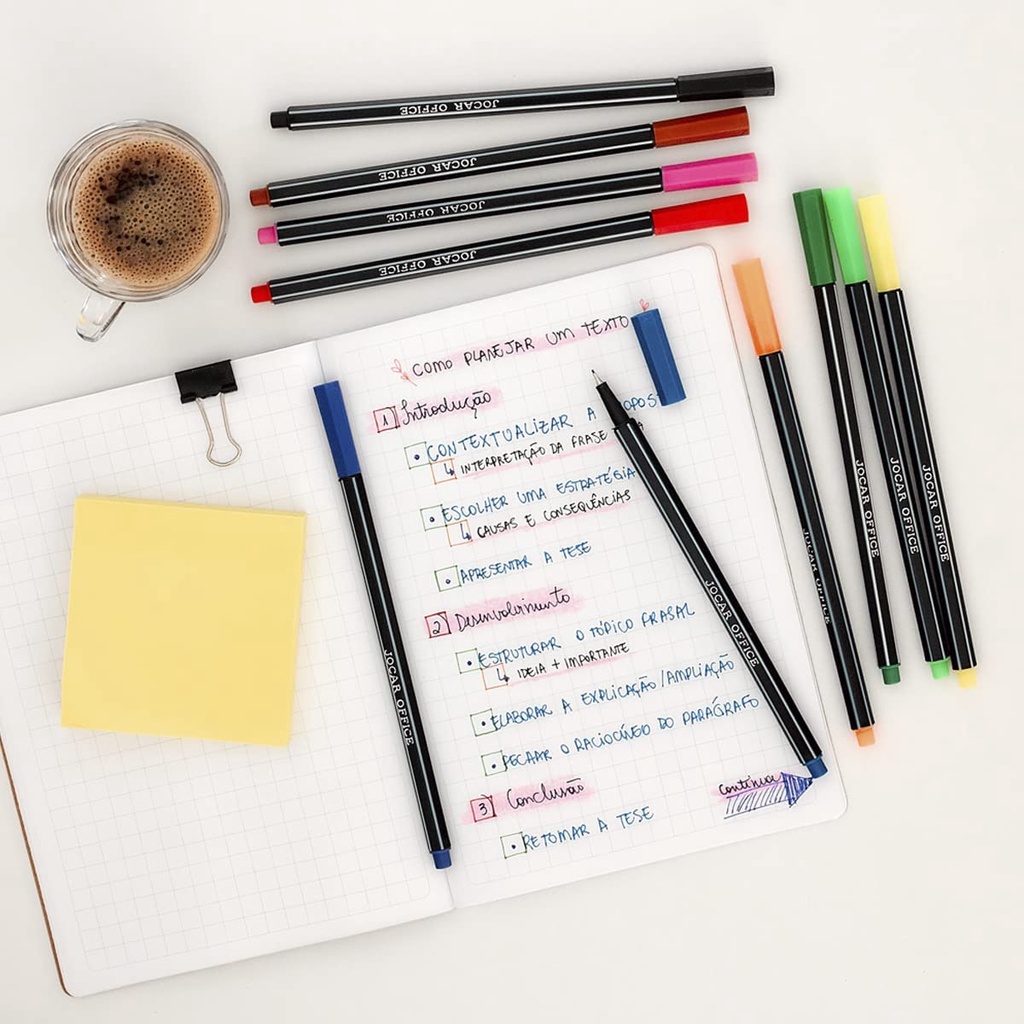 JOCAR OFFICE
JOCAR OFFICE
JOCAR OFFICE
JOCAR OFFICE
COMO PLANEJAR UM TEXTO
1 Introdução
• CONTEXTUALIZAR A
↳ INTERPRETAÇÃO DA FRASE
• ESCOLHER UMA ESTRATÉGIA
↳ CAUSAS E CONSEQUÊNCIAS
• APRESENTAR A TESE
2 Desenvolvimento
• ESTRUTURAR O TÓPICO FRASAL
↳ IDEIA + IMPORTANTE
• ELABORAR A EXPLICAÇÃO/AMPLIAÇÃO
• FECHAR O RACIOCÍNIO DO PARÁGRAFO
3 Conclusão
• RETOMAR A TESE
Continua
JOCAR OFFICE
JOCAR OFFICE
JOCAR OFFICE
JOCAR OFFICE
JOCAR OFFICE
JOCAR OFFICE